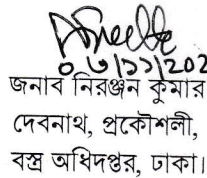 ০৬/১১/202
জনাব নিরঞ্জন কুমার
দেবনাথ, প্রকৌশলী,
বস্ত্র অধিদপ্তর, ঢাকা।